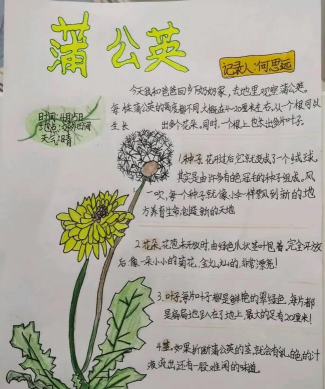 蒲公英
记录人:何思远
时间:4月5日
天气:晴
今天我和爸爸回乡下奶奶家,去地里观察蒲公英。
每株蒲公英的高度都不同大概在4-20厘米左右,从一个根可以
生长出多个花朵,同时,一个根上也长出多片叶子。
1.种子,花形过后它就变成了一个绒球,
其实是由许多白色冠毛的种子组成。风
一吹,每个种子就像小伞一样飘到新的地
方孕育生命创造新的天地
2.花朵,花苞未开放时,由绿色爪状茎叶包着,完全开放
后像一朵小小的菊花,金灿灿的,非常漂亮!
3.叶子,每片叶子都是鲜艳的翠绿色,每片都
是扁扁地趴在了地上,最大的足有20厘米!
4.茎,如果折断蒲公英的茎,就会有乳白色的汁
液流出还有一股难闻的味道。